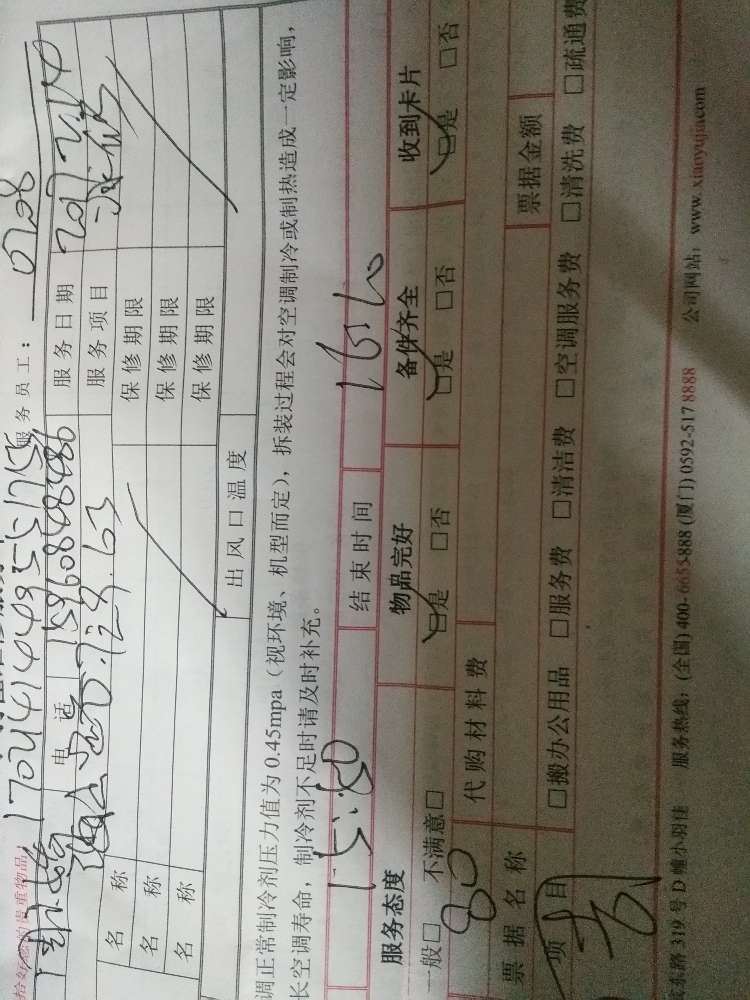 拾好您的贵重物品
1704144935 服务员工：0208
电话 15960868486 服务日期
服务项目
名称 保修期限
名称 保修期限
名称 保修期限
出风口温度
调正常制冷剂压力值为0.45mpa（视环境、机型而定），拆装过程会对空调制冷或制热造成一定影响，
长空调寿命，制冷剂不足时请及时补充。
结束时间
服务态度 物品完好 备件齐全 收到卡片
一般□ 不满意□ □是 □否 □是 □否 □是 □否
80 代购材料费
票据名称 票据金额
项目 □搬办公用品 □服务费 □清洁费 □空调服务费 □清洗费 □疏通费
东路319号D幢小羽佳 服务热线：(全国) 400-6655-888 (厦门) 0592-517 8888 公司网站：www.xiaoyujia.com